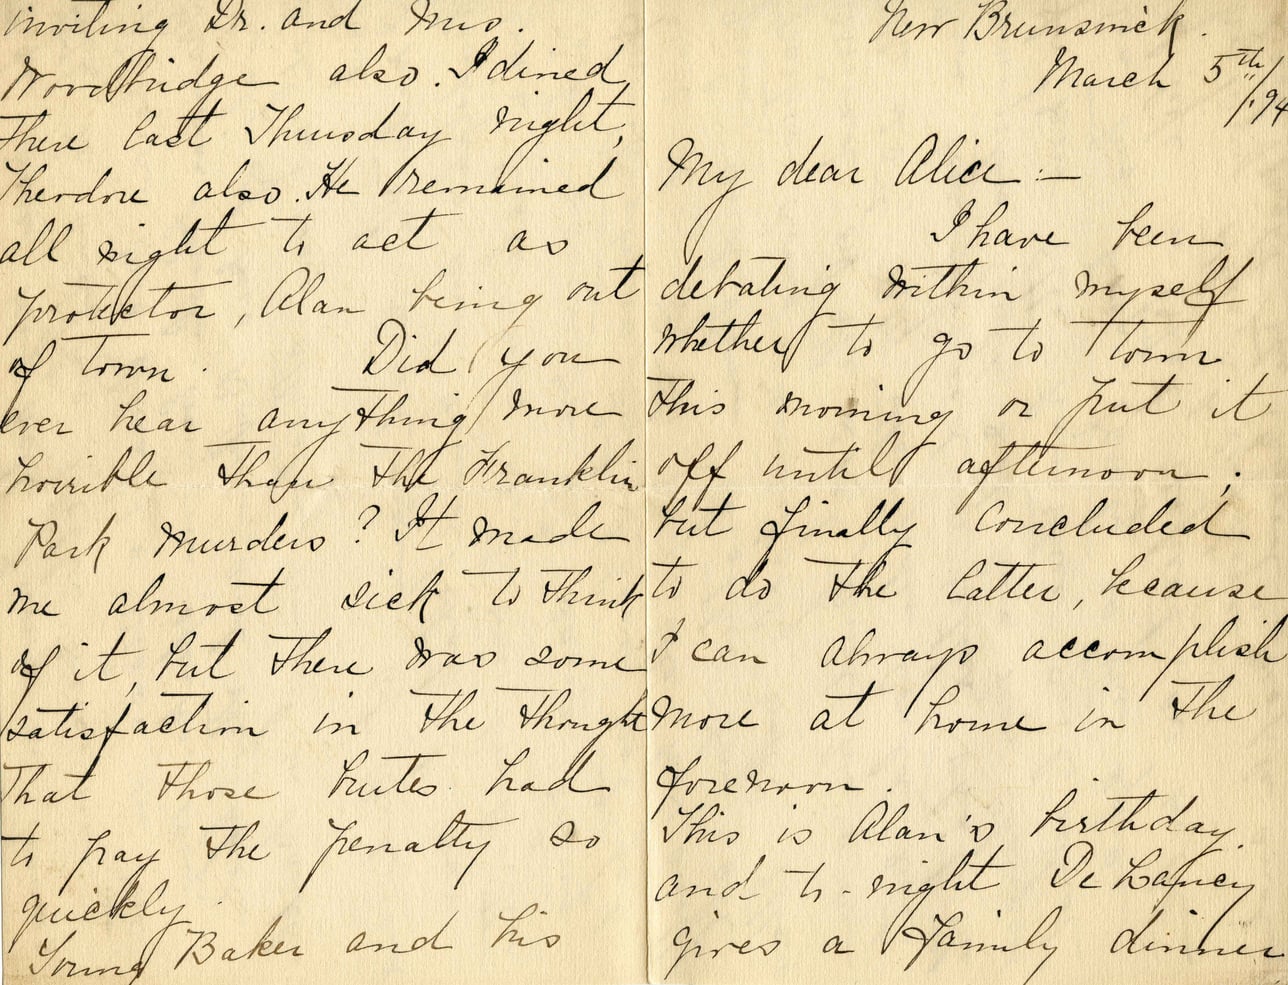 New Brunswick.
March 5th/.94
My dear Alice:—
I have been
debating within myself
whether to go to town
this morning or put it
off until afternoon;
but finally concluded
to do the latter, because
I can always accomplish
more at home in the
forenoon.
This is Alan's birthday
and to-night De Lancy
gives a family dinner
inviting Dr. and Mrs.
Woodbridge also. I dined
there last Thursday night,
Theodore also. He remained
all night to act as
protector, Alan being out
of town. Did you
ever hear anything more
horrible than the Franklin
Park murders? It made
me almost sick to think
of it, but there was some
satisfaction in the thought
that those brutes had
to pay the penalty so
quickly.
Young Baker and his